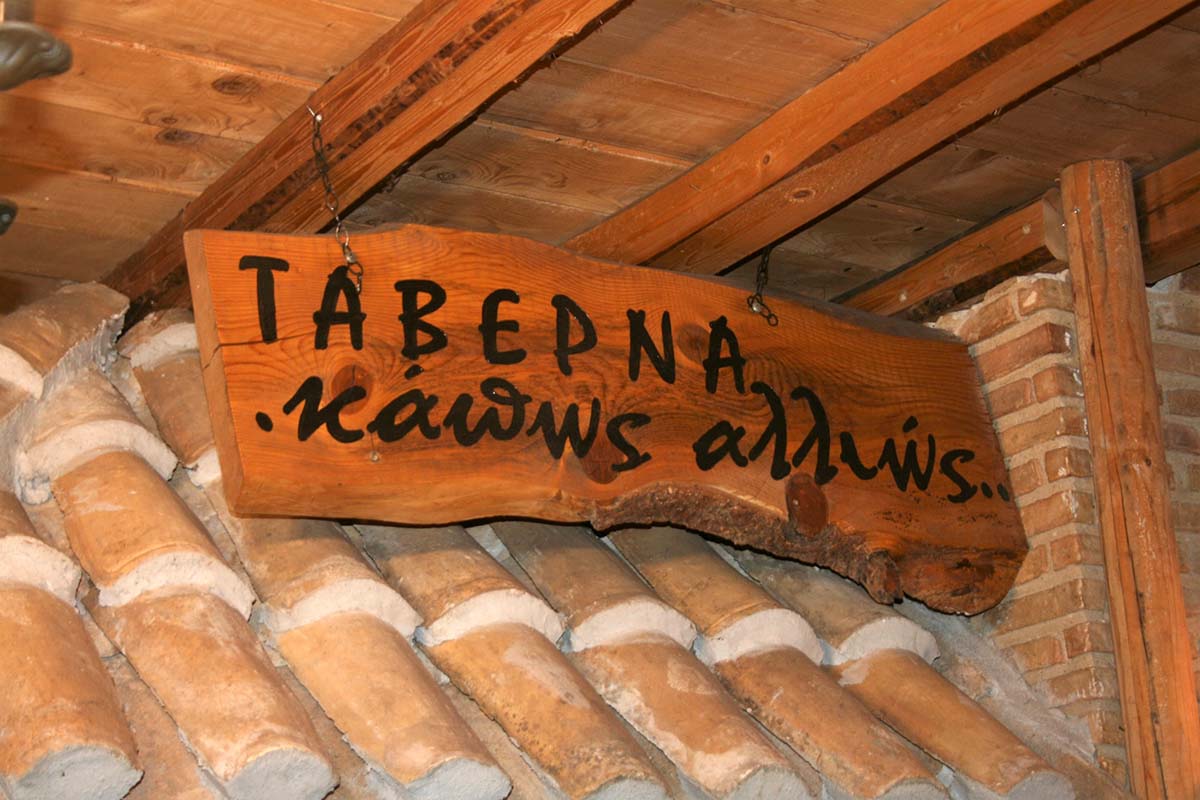 ΤΑΒΕΡΝΑ
.κάπως αλλιώς..